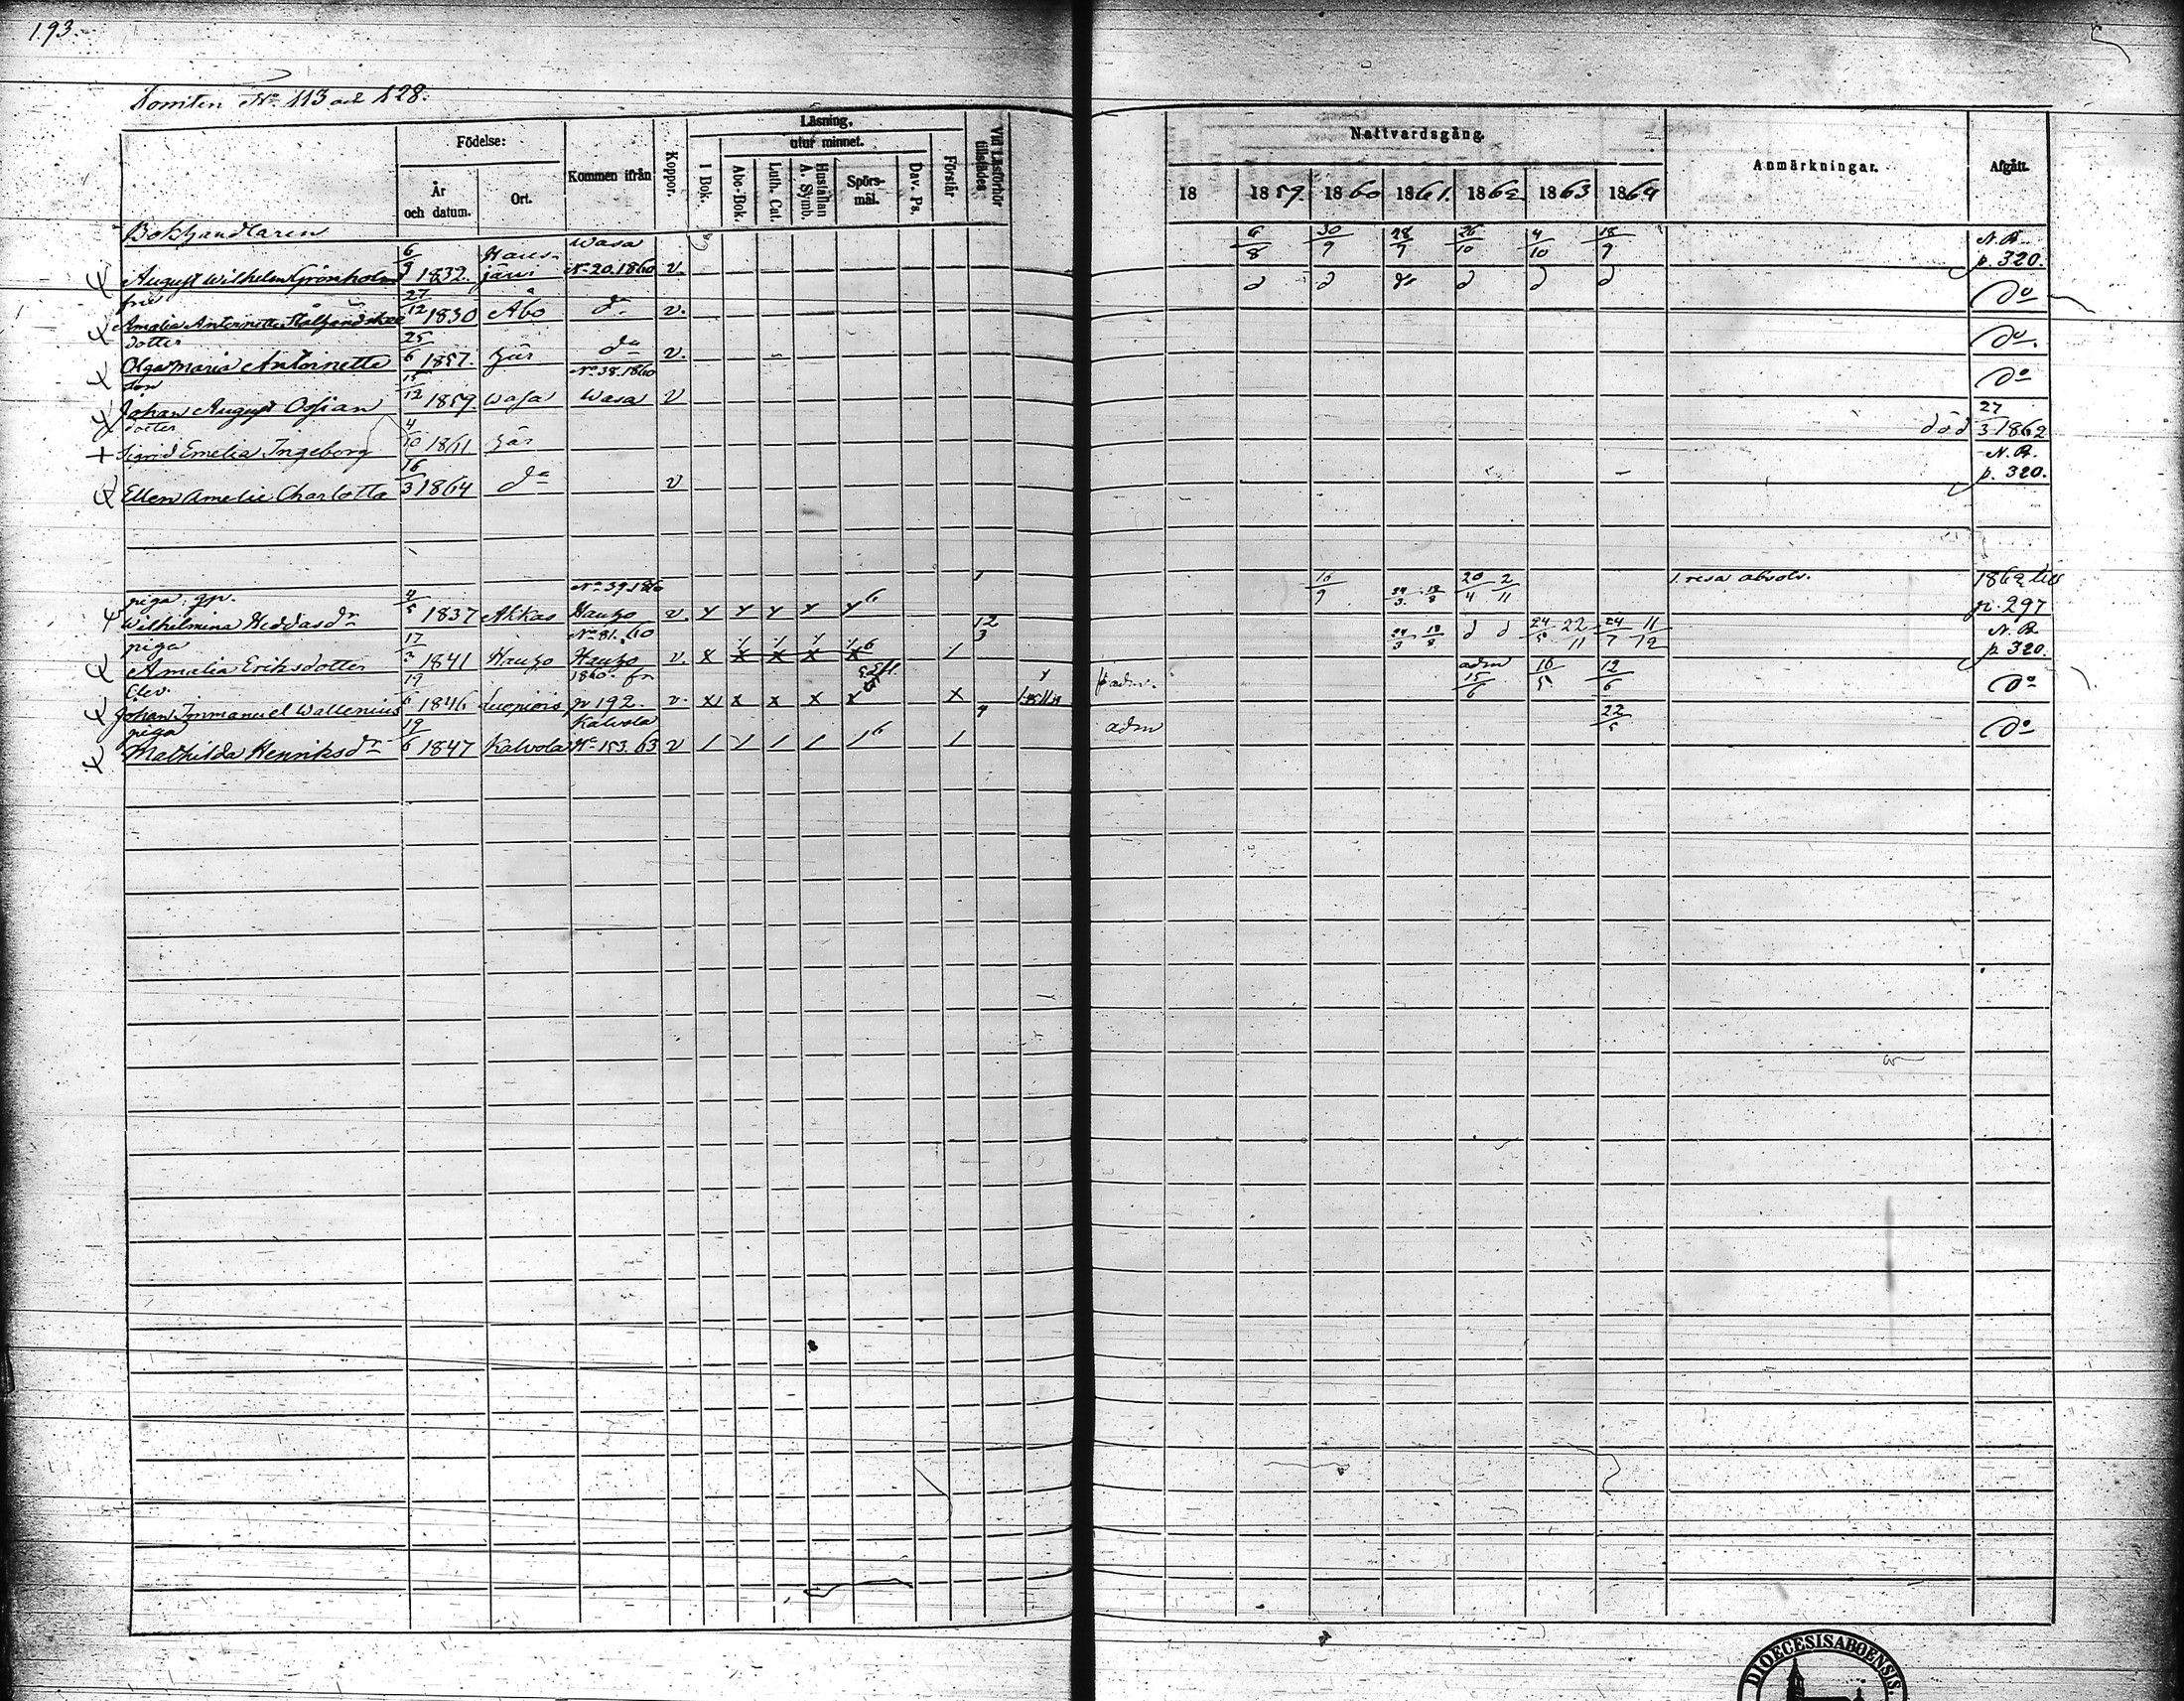 193.
Tomten No 113 och 128.
Födelse:
År och datum.
Ort.
Kommen ifrån
Koppor.
Läsning,
utur minnet.
I Bok.
Abc-Bok.
Luth. Cat.
Hustaflan A. Symb.
Spörsmål.
Dav. Ps.
Förstår
Vid Läsförhör tillstädes
Nattvardsgång.
18 1859. 1860 1861. 1862 1863 1864
Anmärkningar.
Afgått.
Bokhandlaren
August Wilhelm Grönholm 6/9 1832. Hausjärvi Wasa No 20. 1860 v. 6/8 30/9 28/7 26/10 4/10 18/9 N. B. p. 320.
fru
Amalia Antoinette 27/12 1830 Åbo do v. d d do d d d do
dotter
Olga Maria Antoinette 25/6 1857. här do v. do
son
Johan August Ossian 15/12 1859. Wasa No 38. 1860 Wasa v do
dotter
+ Sigrid Emelia Ingeborg 4/10 1861 här död 27/3 1862
Ellen Amelie Charlotta 16/3 1864 do v N. B. p. 320.
piga gv.
Wilhelmina Heddasdr 4/5 1837 Akkas No 39. 1860 Hauho v. 16/9 20/4 2/11 1 resa absolv. 1862 till p. 297
piga
Amalia Eriksdotter 17/3 1841 Hauho No 81. 60 Hauho v. x d d 24/5 22/11 24/7 11/12 N. B. p 320.
Elev.
Johan Immanuel Wallenius 19/6 1846 1860. fr p 192. v. x x x x x adm. adm 15/6 16/5 12/6 do
piga
Mathilda Henriksdr 19/6 1847 Kalvola Kalvola No 153. 63 v adm 22/5 do
DIOECESIS ABOENSIS.